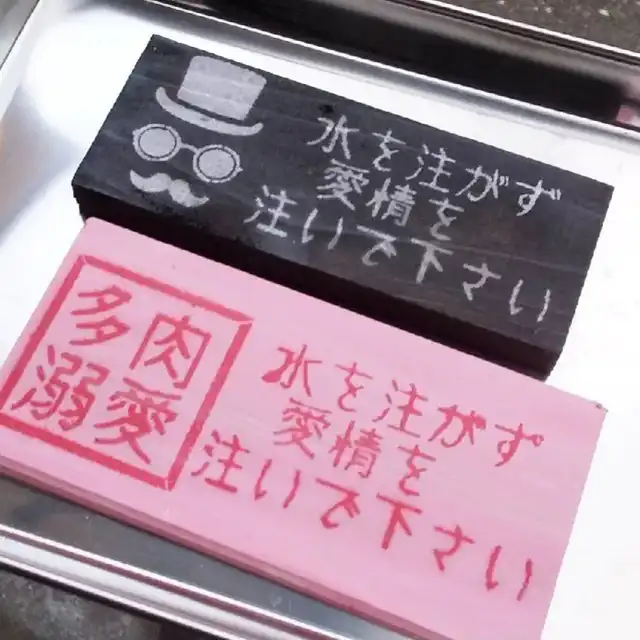 水を注がず
愛情を
注いで下さい
多肉
溺愛
水を注がず
愛情を
注いで下さい